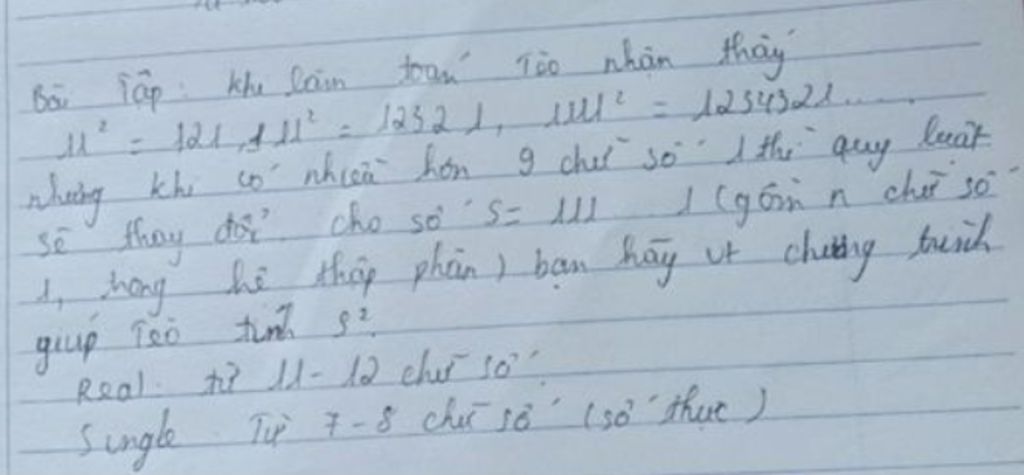 Bài Tập: khi làm toán Tèo nhận thấy
11² = 121, 111² = 12321, 1111² = 1234321.....
nhưng khi có nhiều hơn 9 chữ số 1 thì quy luật
sẽ thay đổi. cho số S = 111 1 (gồm n chữ số
1, trong hệ thập phân) bạn hãy vt chương trình
giúp Tèo tính S².
Real: từ 11 - 12 chữ số.
Single Từ 7 - 8 chữ số (số thực)